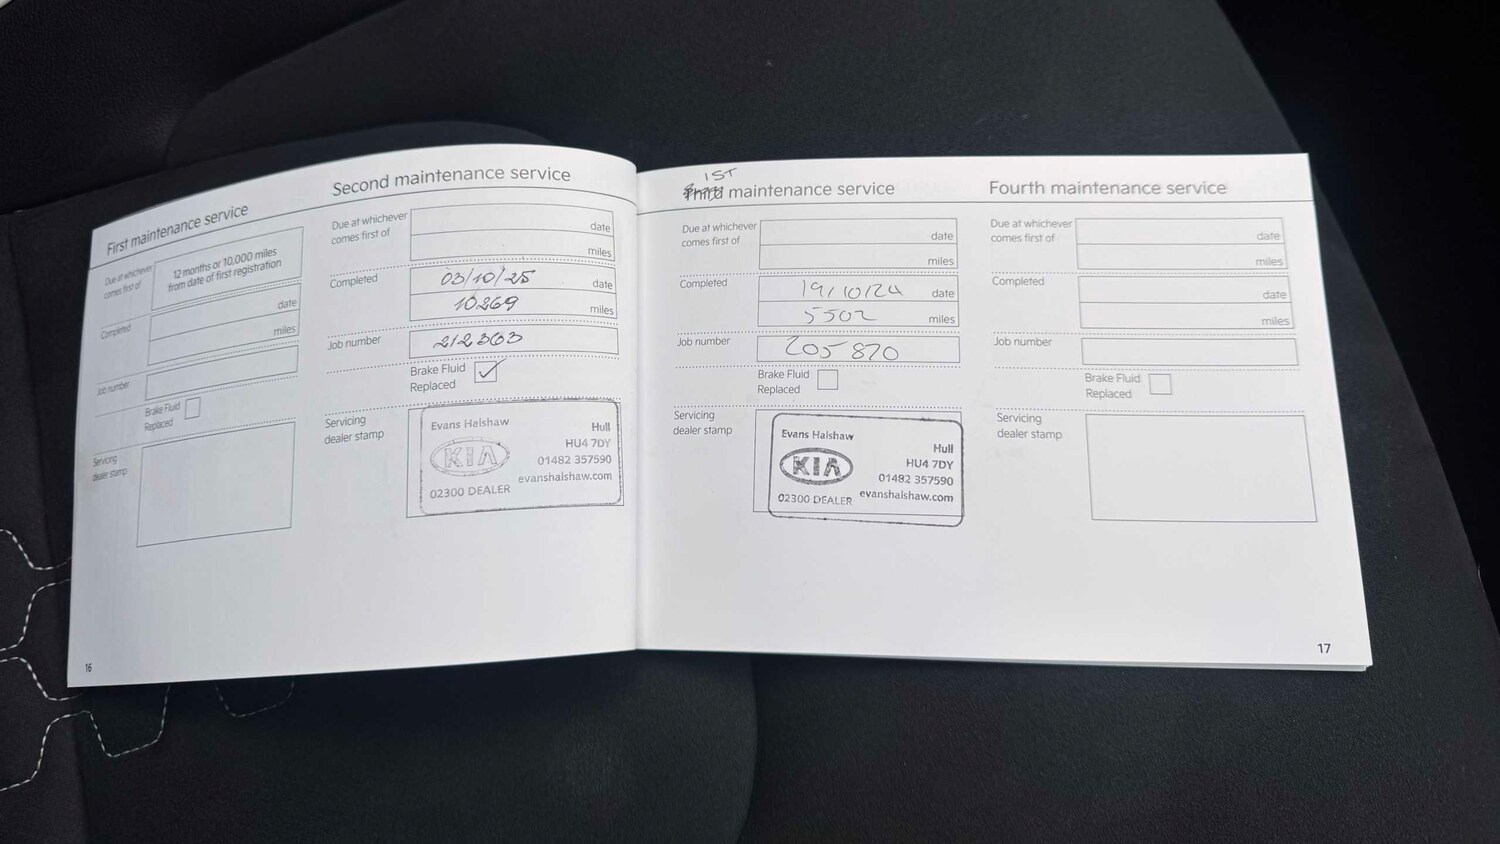 First maintenance service
Due at whichever
comes first of
12 months or 10,000 miles
from date of first registration
Completed
date
miles
Job number
Brake Fluid
Replaced
Servicing
dealer stamp
16
Second maintenance service
Due at whichever
comes first of
date
miles
Completed
03/10/25 date
10269 miles
Job number
212363
Brake Fluid
Replaced
Servicing
dealer stamp
Evans Halshaw
KIA
Hull
HU4 7DY
01482 357590
evanshalshaw.com
02300 DEALER
1ST
Third maintenance service
Due at whichever
comes first of
date
miles
Completed
19/10/24 date
5502 miles
Job number
205820
Brake Fluid
Replaced
Servicing
dealer stamp
Evans Halshaw
KIA
Hull
HU4 7DY
01482 357590
evanshalshaw.com
02300 DEALER
Fourth maintenance service
Due at whichever
comes first of
date
miles
Completed
date
miles
Job number
Brake Fluid
Replaced
Servicing
dealer stamp
17